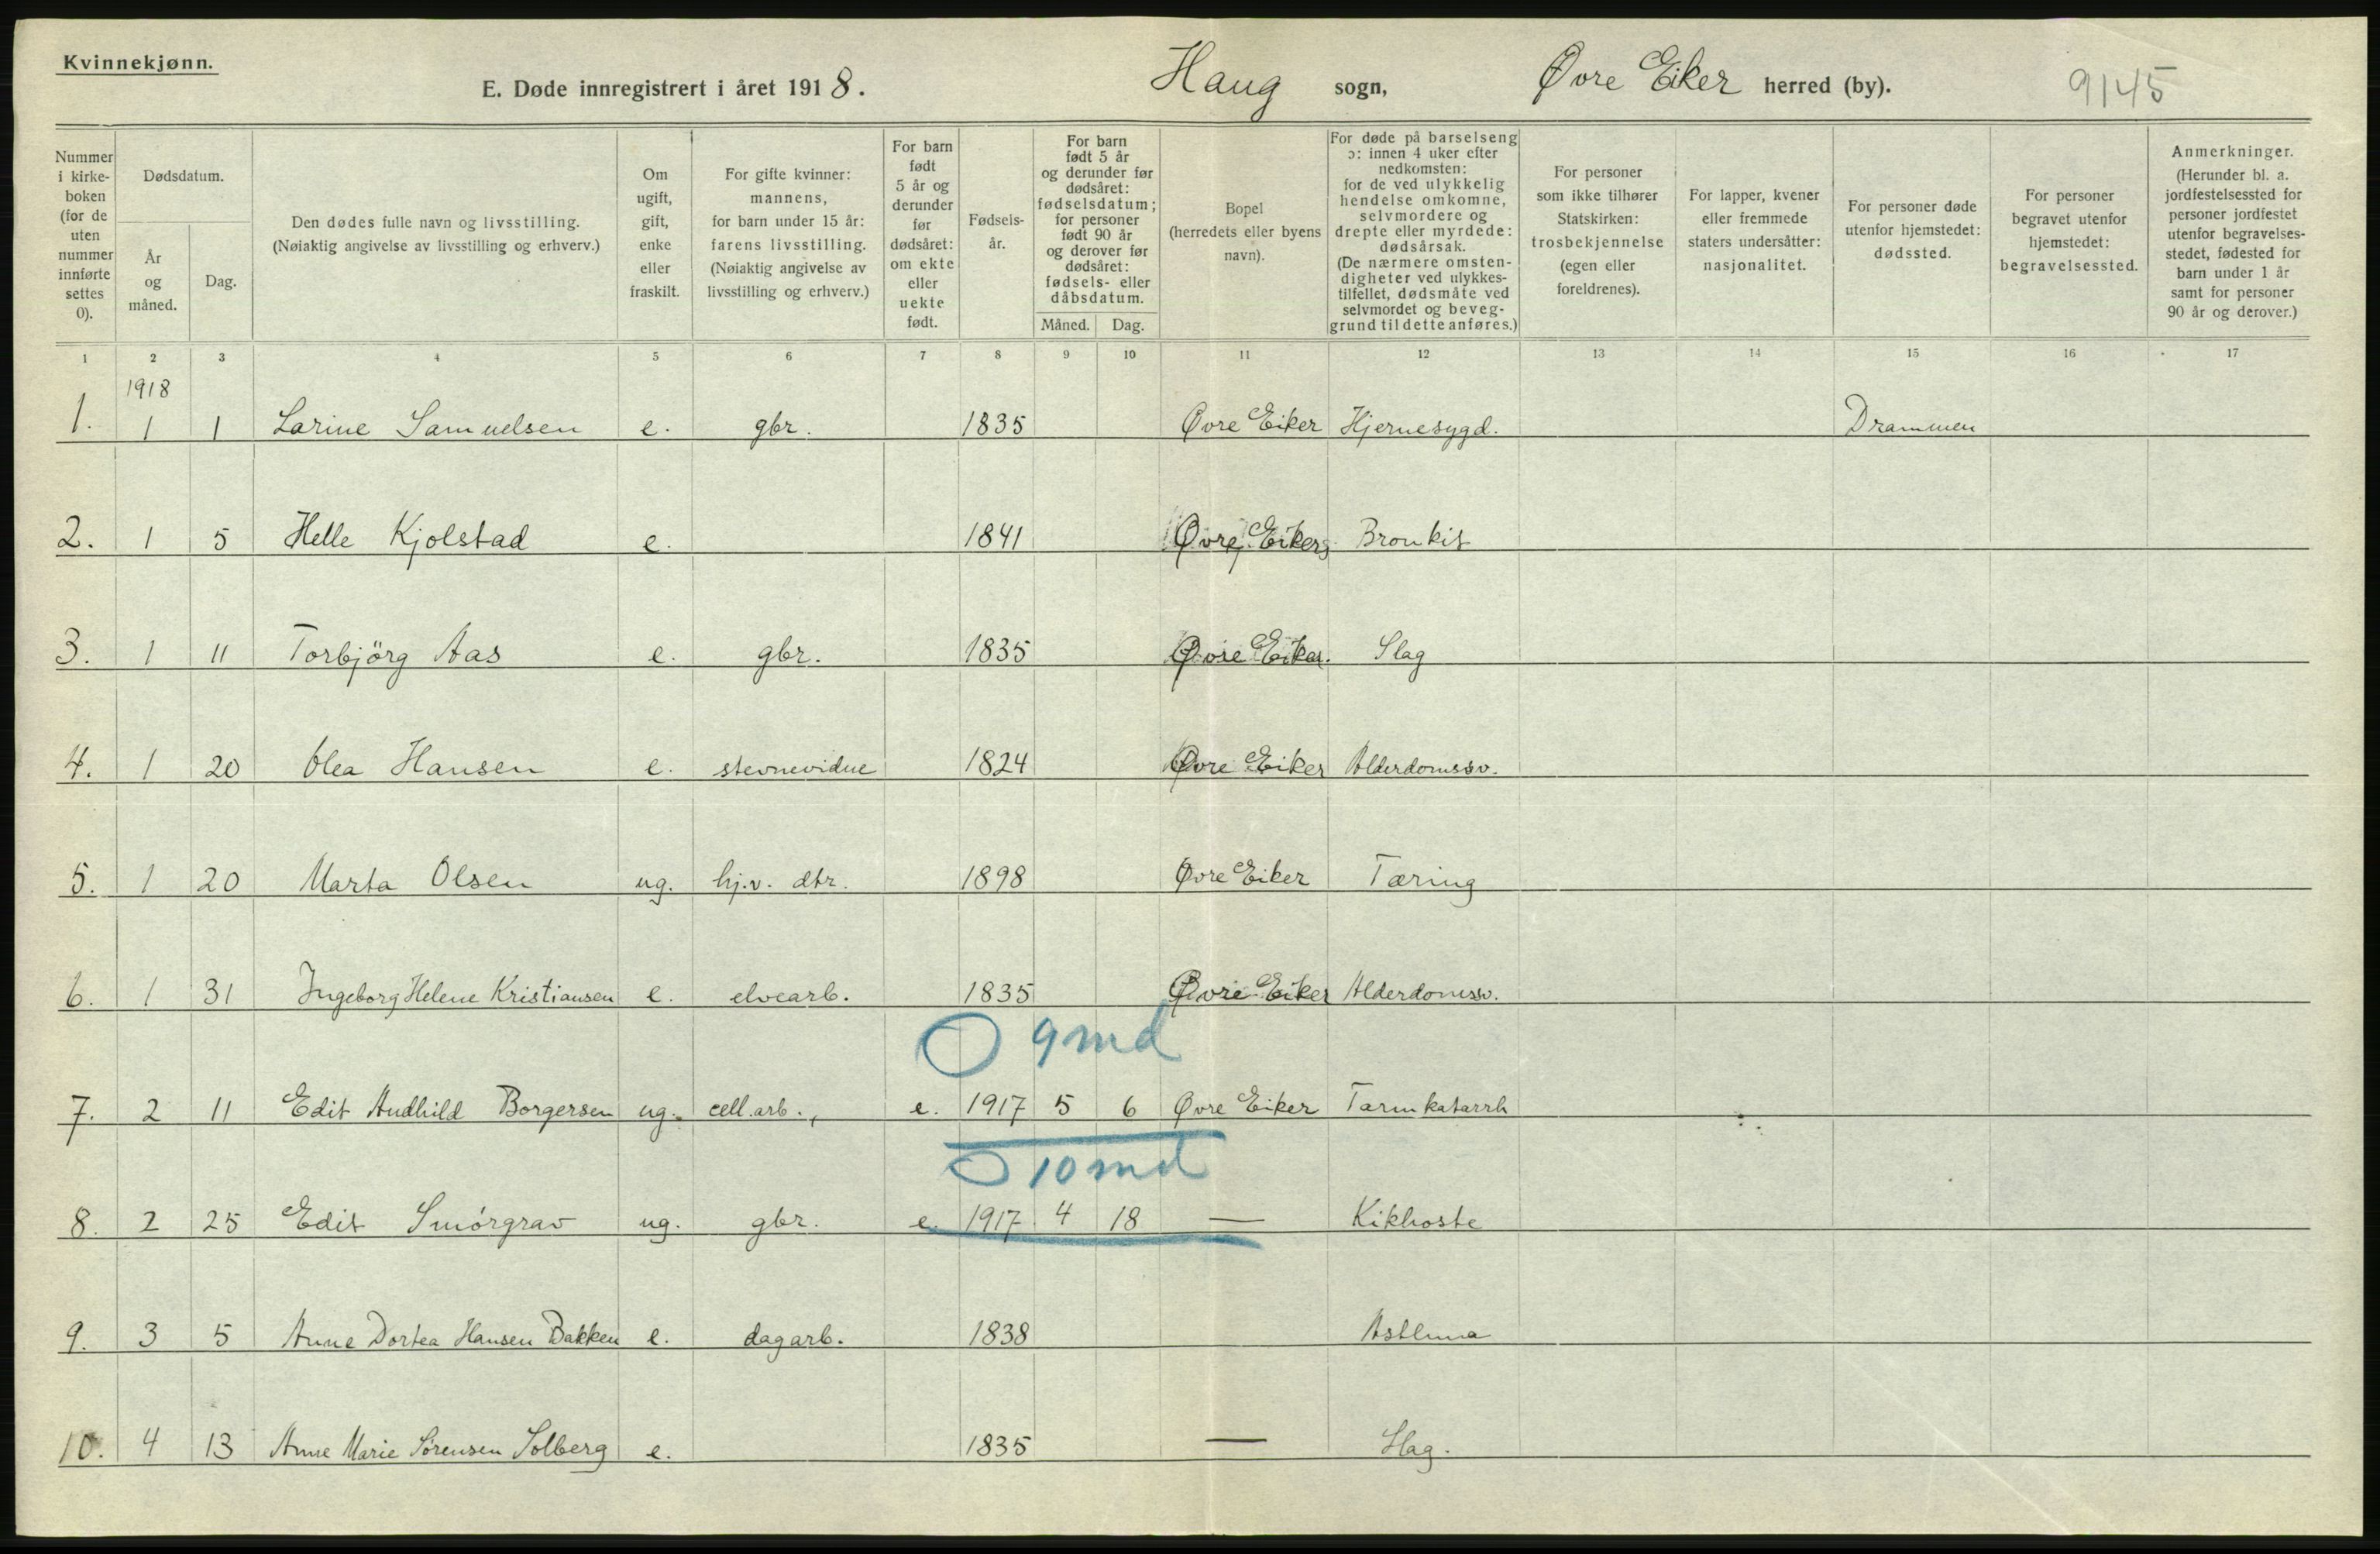 Kvinnekjønn.
E. Døde innregistrert i året 1918. Haug sogn, Øvre Eiker herred (by). 9145
Nummer i kirke-boken (for de uten nummer innførte settes 0).
Dødsdatum.
År og måned.
Dag.
Den dødes fulle navn og livsstilling. (Nøiaktig angivelse av livsstilling og erhverv.)
Om ugift, gift, enke eller fraskilt.
For gifte kvinner: mannens, for barn under 15 år: farens livsstilling. (Nøiaktig angivelse av livsstilling og erhverv.)
For barn født 5 år og derunder før dødsåret: om ekte eller uekte født.
Fødsels-år.
For barn født 5 år og derunder før dødsåret: fødselsdatum; for personer født 90 år og derover før dødsåret: fødsels- eller dåbsdatum.
Måned. Dag.
Bopel (herredets eller byens navn).
For døde på barselseng ɔ: innen 4 uker efter nedkomsten: for de ved ulykkelig hendelse omkomne, selvmordere og drepte eller myrdede: dødsårsak. (De nærmere omsten-digheter ved ulykkes-tilfellet, dødsmåte ved selvmordet og beveg-grund til dette anføres.)
For personer som ikke tilhører Statskirken: trosbekjennelse (egen eller foreldrenes).
For lapper, kvener eller fremmede staters undersåtter: nasjonalitet.
For personer døde utenfor hjemstedet: dødssted.
For personer begravet utenfor hjemstedet: begravelsessted.
Anmerkninger. (Herunder bl. a. jordfestelsessted for personer jordfestet utenfor begravelses-stedet, fødested for barn under 1 år samt for personer 90 år og derover.)
1 2 3 4 5 6 7 8 9 10 11 12 13 14 15 16 17
1918
1. 1 1 Larine Samuelsen e. gbr. 1835 Øvre Eiker Hjernesygd. Drammen
2. 1 5 Helle Kjolstad e. 1841 Øvre Eiker Bronkit
3. 1 11 Torbjörg Aas e. gbr. 1835 Øvre Eiker. Slag
4. 1 20 Olea Hansen e. stevnevidne 1824 Øvre Eiker Alderdomssv.
5. 1 20 Marta Olsen ug. hj.v. dtr. 1898 Øvre Eiker Tæring
6. 1 31 Ingeborg Helene Kristiansen e. elvearb. 1835 Øvre Eiker Alderdomssv.
0 9 md
7. 2 11 Edit Audhild Borgersen ug. cell.arb., e. 1917 5 6 Øvre Eiker Tarmkatarrh
0 10 md
8. 2 25 Edit Smórgrav ug. gbr. e. 1917 4 18 — Kikhoste
9. 3 5 Anne Dortea Hansen Bakken e. dagarb. 1838 Asthma
10. 4 13 Anne Marie Sørensen Solberg e. 1835 — Slag.